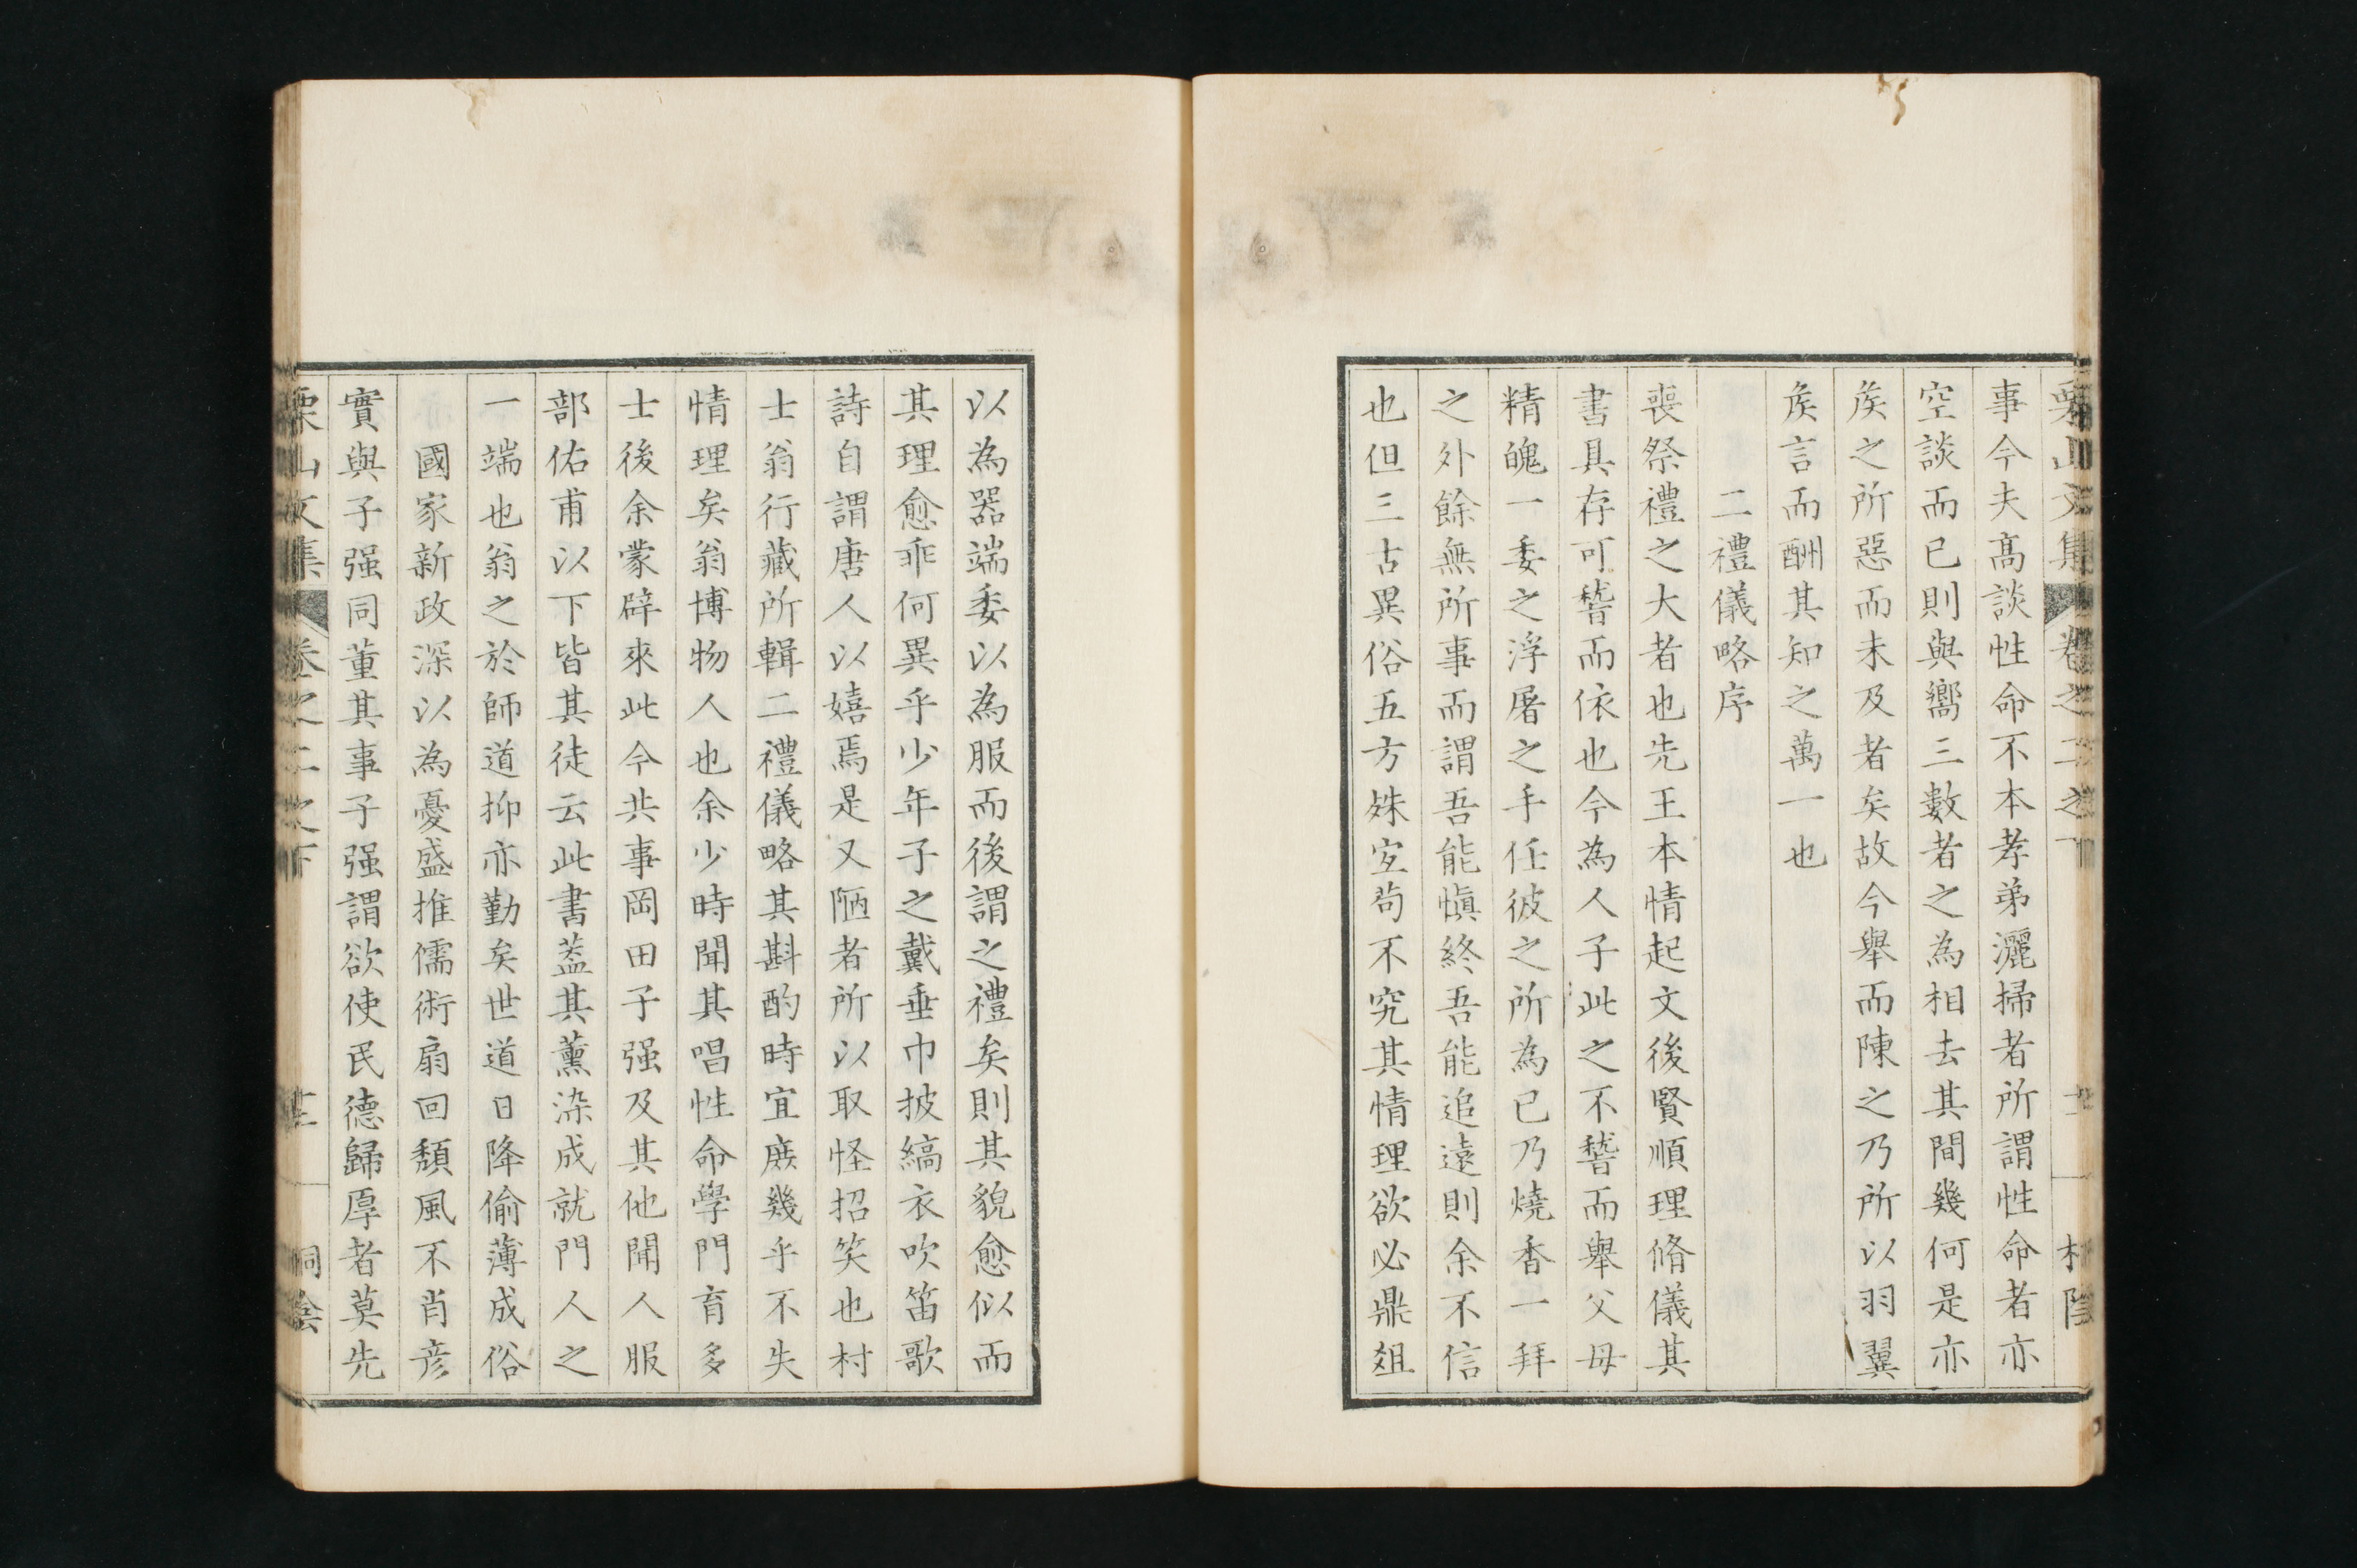 事今夫髙談性命不本孝弟灑掃者所謂性命者亦
空談而已則與嚮三數者之為相去其間幾何是亦
矦之所惡而未及者矣故今舉而陳之乃所以羽翼
矦言而酬其知之萬一也
二禮儀略序
喪祭禮之大者也先王本情起文後賢順理脩儀其
書具存可瞽而依也今為人子此之不瞽而舉父母
精魄一委之浮屠之手任彼之所為已乃燒香一拜
之外餘無所事而謂吾能慎終吾能追遠則余不信
也但三古異俗五方姝宐茍不究其情理欲必鼎俎
以為器端委以為服而後謂之禮矣則其貌愈似而
其理愈乖何異乎少年子之戴垂巾披縞衣吹笛歌
詩自謂唐人以嬉焉是又陋者所以取怪招笑也村
士翁行藏所輯二禮儀略其斟酌時宜庶幾乎不失
情理矣翁博物人也余少時聞其唱性命學門育多
士後余蒙辟來此今共事岡田子强及其他聞人服
部佑甫以下皆其徒云此書葢其薰染成就門人之
一端也翁之於師道抑亦勤矣世道日降偷薄成俗
國家新政深以為憂盛推儒術扇回頽風不肖彦
實與子强同董其事子强謂欲使民德歸厚者莫先
栗山文集 卷之二之下